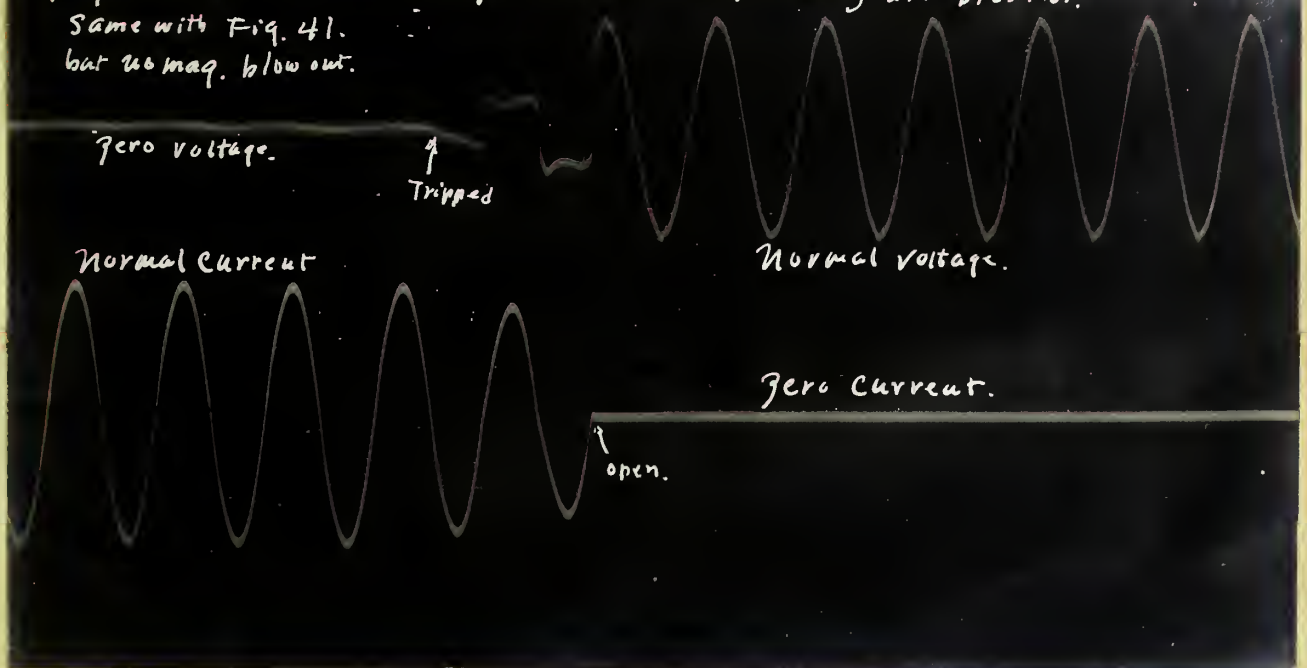 Same with Fig. 41.
but no mag. blow out.
Zero voltage.
Tripped
Normal Current
Normal voltage.
Zero Current.
open.